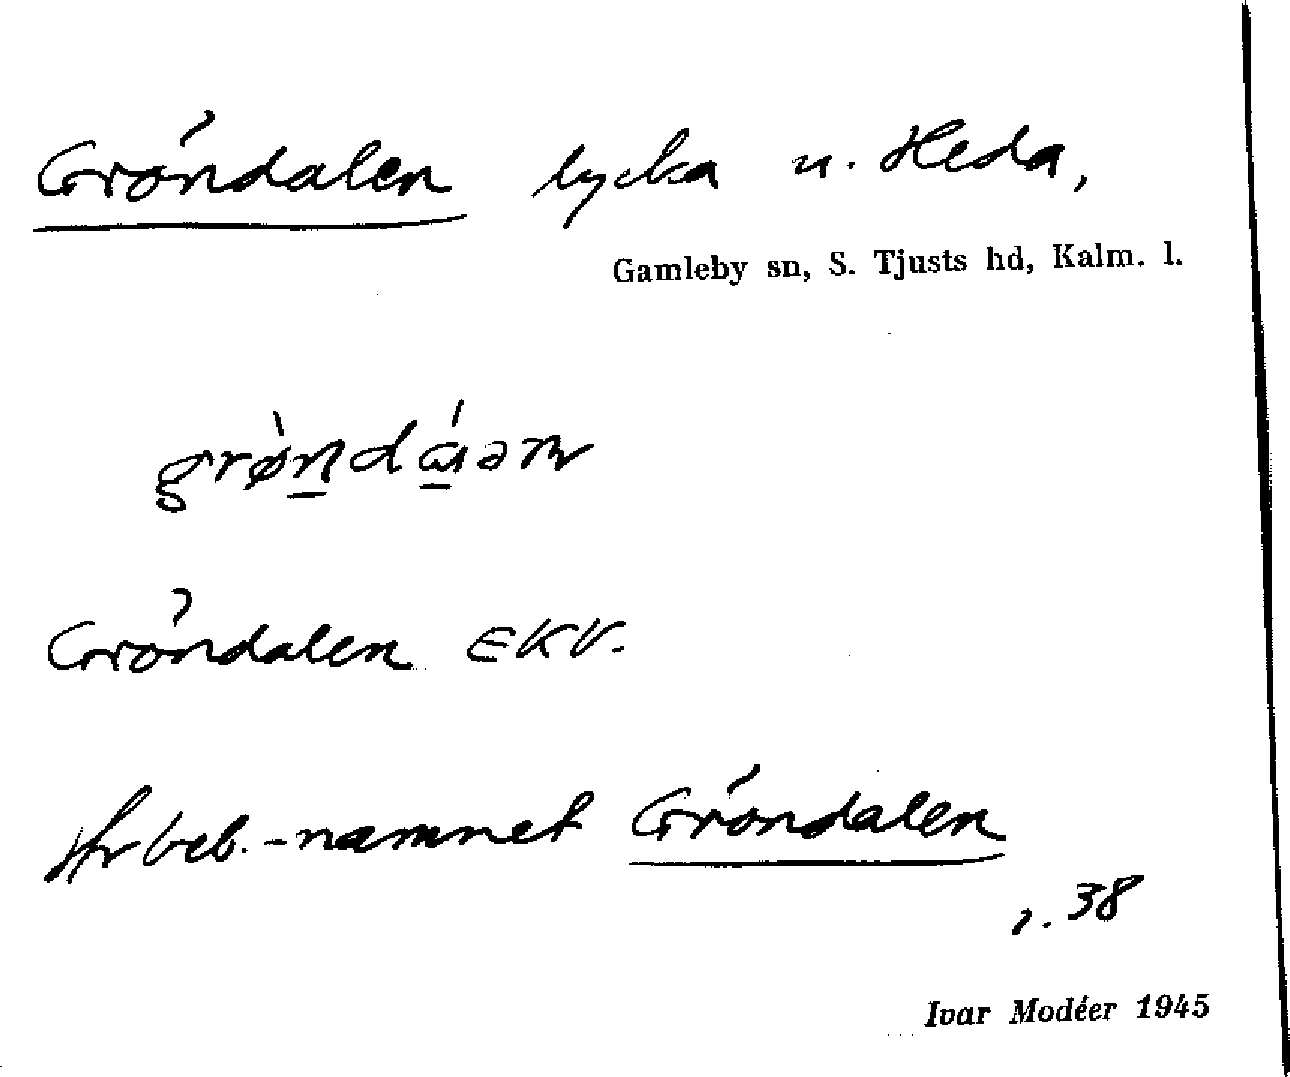 Gröndalen lycka u. Heda,
Gamleby sn, S. Tjusts hd, Kalm. l.
Gröndalen EKV.
Jfr beb.-namnet Gröndalen
s. 38
Ivar Modéer 1945